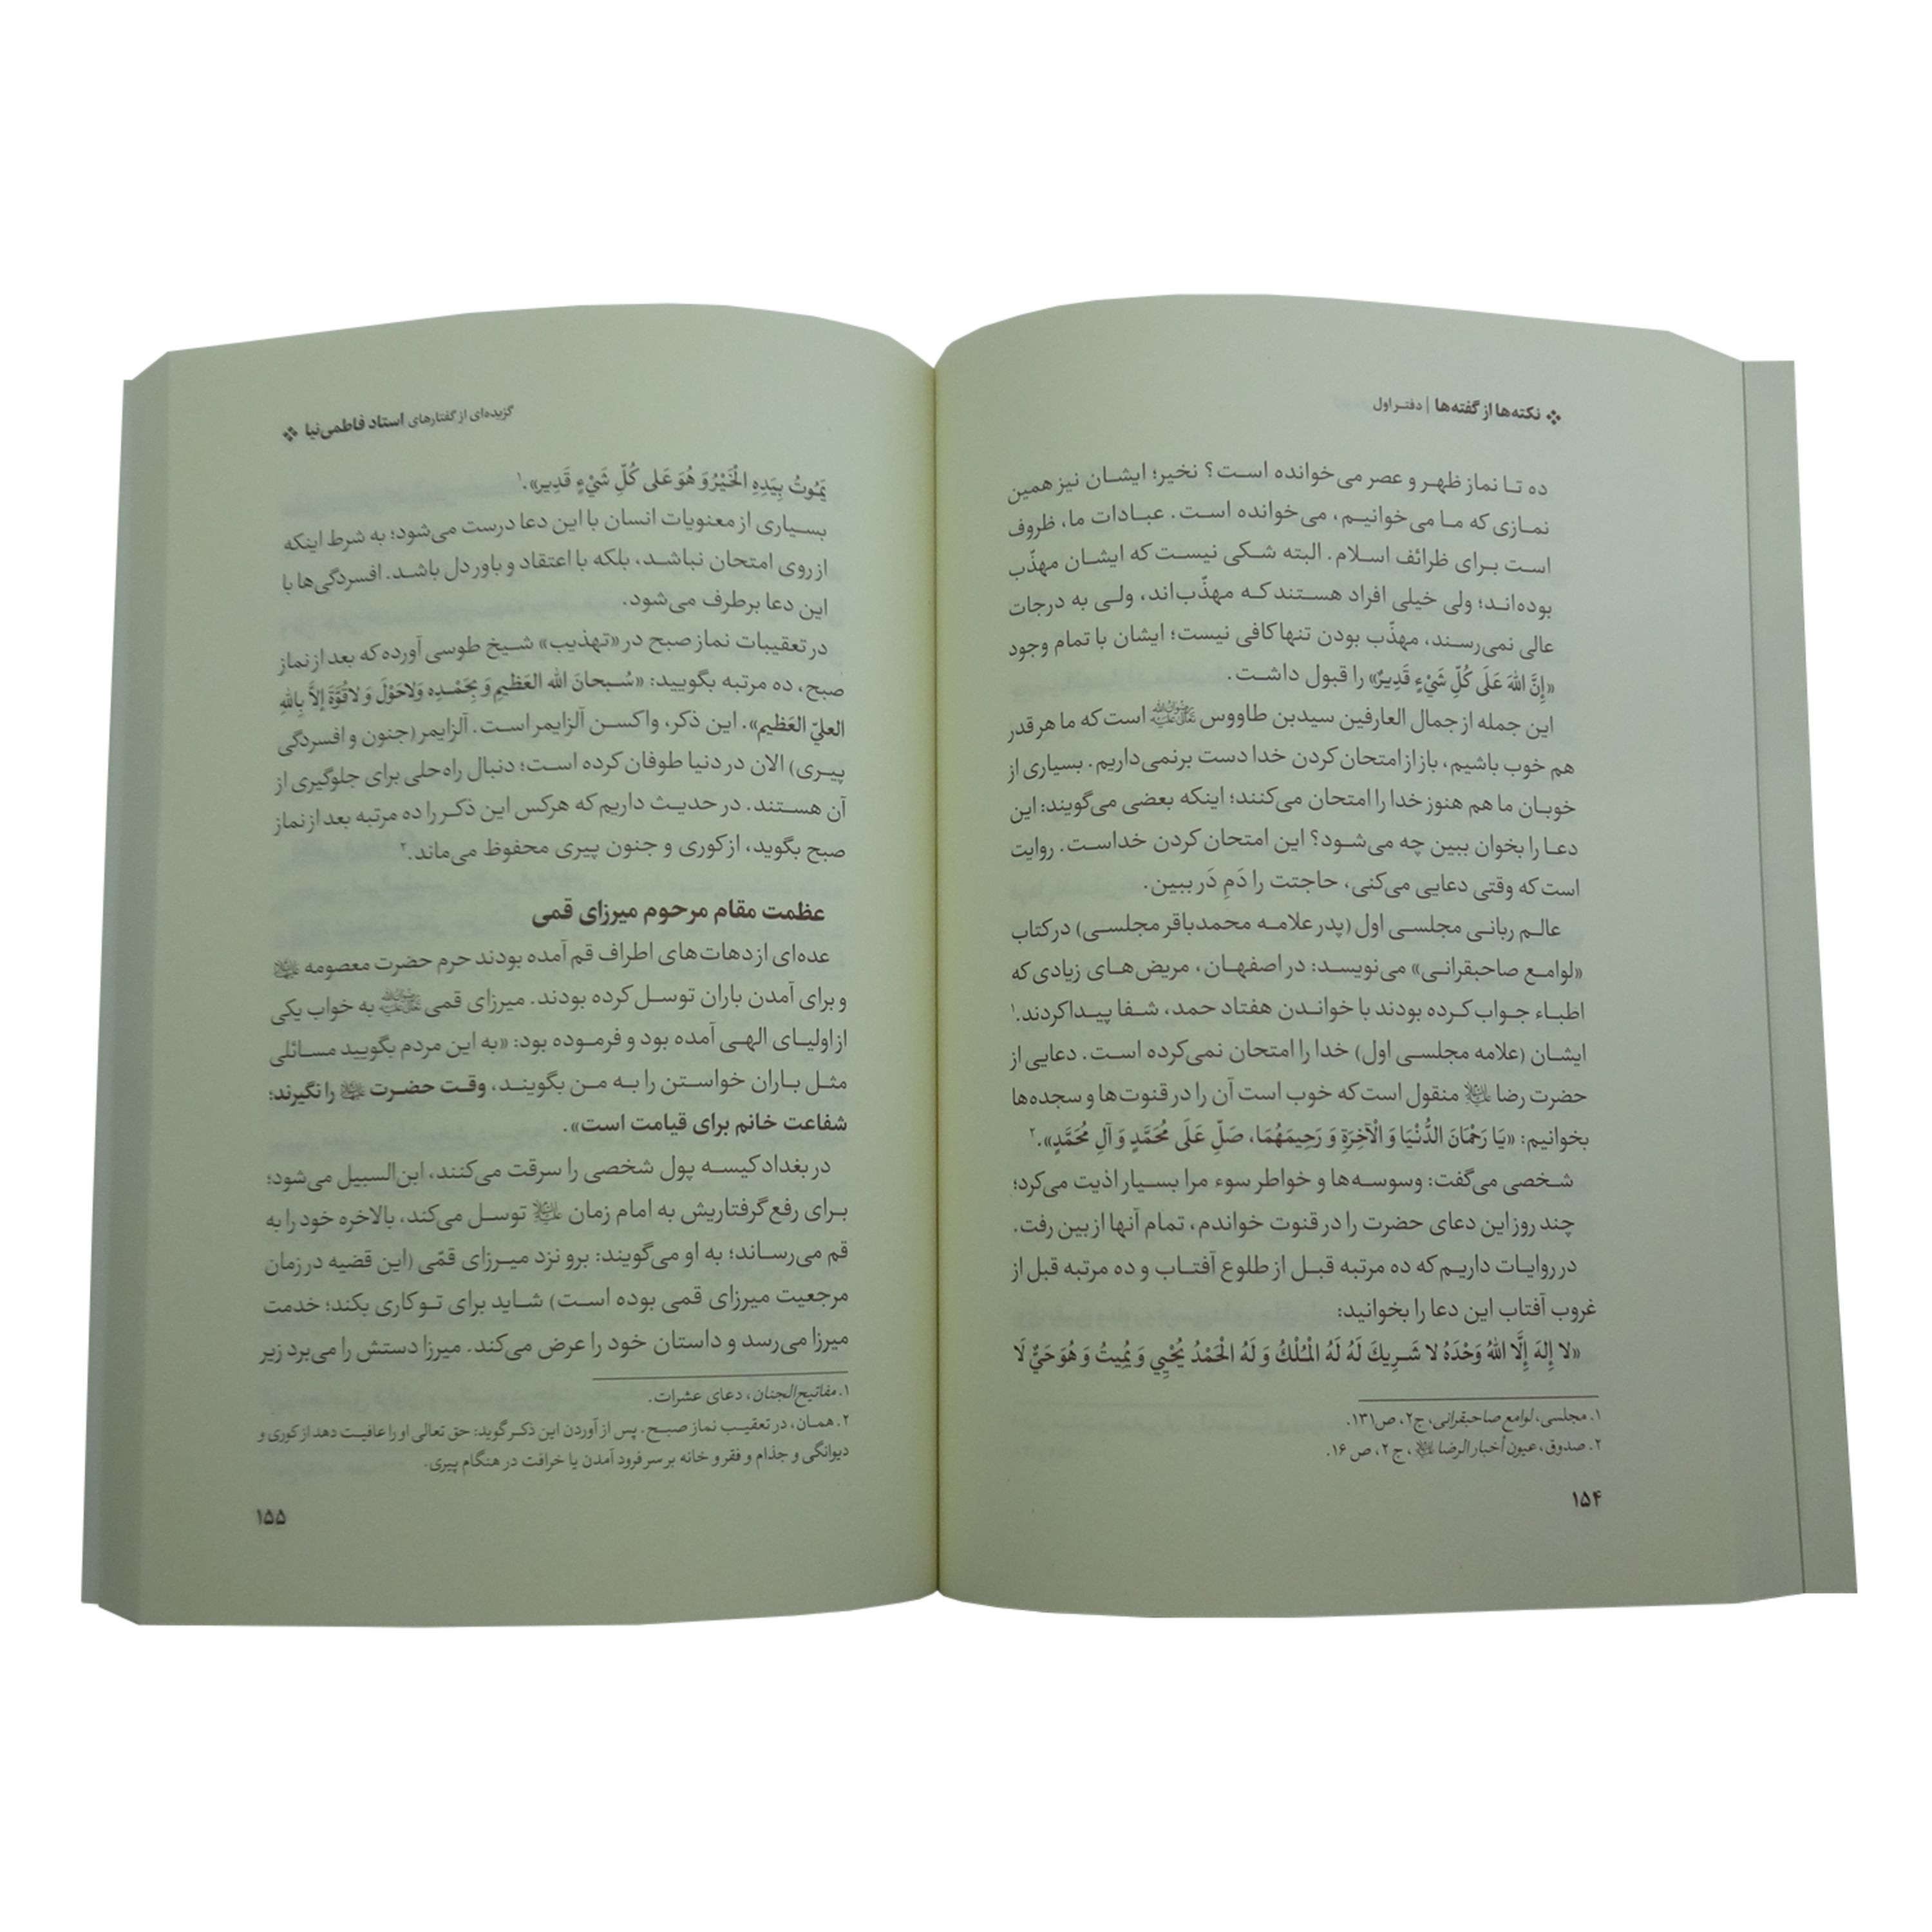 نکته‌ها از گفته‌ها | دفتر اول
ده تا نماز ظهر و عصر می‌خوانده است؟ نخیر؛ ایشان نیز همین
نمازی که ما می‌خوانیم، می‌خوانده است. عبادات ما، ظروف
است برای ظرائف اسلام. البته شکی نیست که ایشان مهذّب
بوده‌اند؛ ولی خیلی افراد هستند که مهذّب‌اند، ولی به درجات
عالی نمی‌رسند، مهذّب بودن تنها کافی نیست؛ ایشان با تمام وجود
«إِنَّ اللهَ عَلَى كُلِّ شَيْءٍ قَدِيرٌ» را قبول داشت.
این جمله از جمال العارفین سیدبن طاووس است که ما هر قدر
هم خوب باشیم، باز از امتحان کردن خدا دست برنمی‌داریم. بسیاری از
خوبان ما هم هنوز خدا را امتحان می‌کنند؛ اینکه بعضی می‌گویند: این
دعا را بخوان ببین چه می‌شود؟ این امتحان کردن خداست. روایت
است که وقتی دعایی می‌کنی، حاجتت را دَمِ دَر ببین.
عالم ربانی مجلسی اول (پدر علامه محمدباقر مجلسی) در کتاب
«لوامع صاحبقرانی» می‌نویسد: در اصفهان، مریض‌های زیادی که
اطباء جواب کرده بودند با خواندن هفتاد حمد، شفا پیدا کردند.۱
ایشان (علامه مجلسی اول) خدا را امتحان نمی‌کرده است. دعایی از
حضرت رضا علیه‌السلام منقول است که خوب است آن را در قنوت‌ها و سجده‌ها
بخوانیم: «يَا رَحْمَانَ الدُّنْيَا وَ الْآخِرَةِ وَ رَحِيمَهُمَا، صَلِّ عَلَى مُحَمَّدٍ وَ آلِ مُحَمَّدٍ».۲
شخصی می‌گفت: وسوسه‌ها و خواطر سوء مرا بسیار اذیت می‌کرد؛
چند روز این دعای حضرت را در قنوت خواندم، تمام آنها از بین رفت.
در روایات داریم که ده مرتبه قبل از طلوع آفتاب و ده مرتبه قبل از
غروب آفتاب این دعا را بخوانید:
«لا إِلهَ إِلَّا اللهُ وَحْدَهُ لا شَرِيكَ لَهُ لَهُ الْمُلْكُ وَ لَهُ الْحَمْدُ يُحْيِي وَ يُمِيتُ وَ هُوَ حَيٌّ لَا
۱. مجلسی، لوامع صاحبقرانی، ج۲، ص۱۳۱.
۲. صدوق، عیون أخبار الرضا علیه‌السلام، ج ۲، ص ۱۶.
۱۵۴
گزیده‌ای از گفتارهای استاد فاطمی‌نیا
يَمُوتُ بِيَدِهِ الْخَيْرُ وَ هُوَ عَلى كُلِّ شَيْءٍ قَدِير».۱
بسیاری از معنویات انسان با این دعا درست می‌شود؛ به شرط اینکه
از روی امتحان نباشد، بلکه با اعتقاد و باور دل باشد. افسردگی‌ها با
این دعا برطرف می‌شود.
در تعقیبات نماز صبح در «تهذیب» شیخ طوسی آورده که بعد از نماز
صبح، ده مرتبه بگویید: «سُبحانَ الله العَظيمِ وَ بِحَمْدِه وَلاحَوْلَ وَ لاقُوَّةَ إلاَّ بِاللهِ
العليّ العَظيم». این ذکر، واکسن آلزایمر است. آلزایمر (جنون و افسردگی
پیری) الان در دنیا طوفان کرده است؛ دنبال راه‌حلی برای جلوگیری از
آن هستند. در حدیث داریم که هرکس این ذکر را ده مرتبه بعد از نماز
صبح بگوید، از کوری و جنون پیری محفوظ می‌ماند.۲
عظمت مقام مرحوم میرزای قمی
عده‌ای از دهات‌های اطراف قم آمده بودند حرم حضرت معصومه
و برای آمدن باران توسل کرده بودند. میرزای قمی به خواب یکی
از اولیای الهی آمده بود و فرموده بود: «به این مردم بگویید مسائلی
مثل باران خواستن را به من بگویند، وقت حضرت را نگیرند؛
شفاعت خانم برای قیامت است».
در بغداد کیسه پول شخصی را سرقت می‌کنند، ابن‌السبیل می‌شود؛
برای رفع گرفتاریش به امام زمان علیه‌السلام توسل می‌کند، بالاخره خود را به
قم می‌رساند؛ به او می‌گویند: برو نزد میرزای قمّی (این قضیه در زمان
مرجعیت میرزای قمی بوده است) شاید برای تو کاری بکند؛ خدمت
میرزا می‌رسد و داستان خود را عرض می‌کند. میرزا دستش را می‌برد زیر
۱. مفاتیح‌الجنان، دعای عشرات.
۲. همان، در تعقیب نماز صبح. پس از آوردن این ذکر گوید: حق تعالی او را عافیت دهد از کوری و
دیوانگی و جذام و فقر و خانه بر سر فرود آمدن یا خرافت در هنگام پیری.
۱۵۵